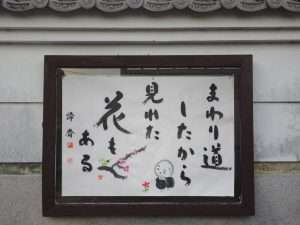 まわり道
したから
見れた
花も
ある